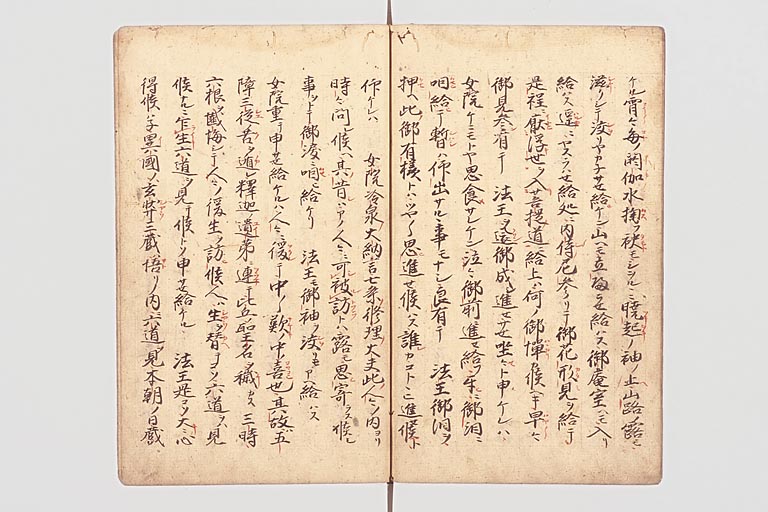 ケル霄ニ毎ノ閼伽水掬フ袂モシヲルヽニ暁起ノ袖ノ上山路ノ露モ
滋クシテ泣リヤカナサセ給ケン山ヘモ立ラセ給ハス御庵室ヘモ入リ
給ハス還ニ立ラハセ給処ニ内侍尼参リテ御花形見ヲ給テ
是程ニ厭浮世ヲ入菩提道ニ給上ハ何ノ御憚候ヘキ早々
御見参有テ 法王ヲ還御成進セサセ坐セト申ケレハ
女院ケニモトヤ思食サレケン泣々御前進セ給フ先御泪ニ
咽給テ暫ハ仰出サルヽ事モナシ良有テ 法王御泪ヲ
押ヘ此御有様トハツヤツヤ思進セ候ハス誰カコトヽニ進候ト
仰ケレハ 女院冷泉大納言七条修理大夫此人々ノ内ヨリ
時々問候ヘ其昔ハアノ人々ニ可被訪トハ露モ思寄ラス候シ
事ヲトテ御涙ニ咽ヒ給ケリ 法王モ御袖ヲ泣リモアヘ給ハス
女院重テ申セ給ケルハ人々ニ後テ中ノ歎ノ中ノ喜也其故ハ五
障三従苦ヲ遁レ釈迦ノ遺弟ニ連テ比丘ノ聖名ヲ穢カス三時
六根ヲ懺悔シテ人々ノ後生ヲ訪候人ハ生ヲ替テコソ六道ヲハ見
候ナルニ乍生六道ヲ見テ候トノ申セ給ケル 法王是コソ大ニ心
得候ハネ異国ノ玄弉三蔵ハ悟リノ内ニ六道ヲ見本朝ノ日蔵